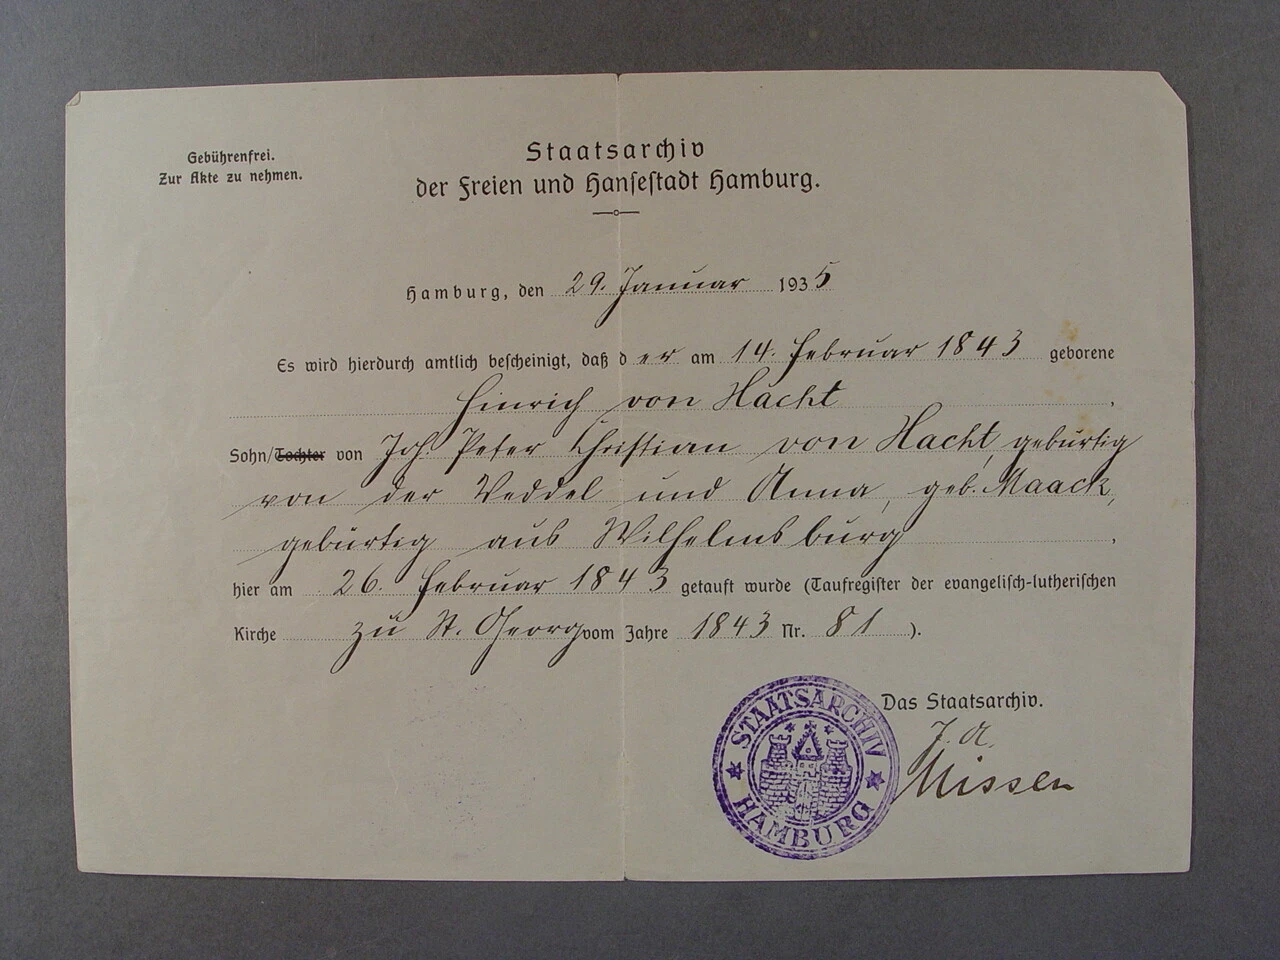 Gebührenfrei.
Zur Akte zu nehmen.
Staatsarchiv
der Freien und Hansestadt Hamburg.
Hamburg, den 29. Januar 1935
Es wird hierdurch amtlich bescheinigt, daß der am 14. Februar 1843 geborene
Hinrich von Hacht,
Sohn/Tochter von Joh. Peter Christian von Hacht, gebürtig
von der Veddel und Anna, geb. Maack,
gebürtig aus Wilhelmsburg,
hier am 26. Februar 1843 getauft wurde (Taufregister der evangelisch-lutherischen
Kirche zu St. Georg vom Jahre 1843 Nr. 81).
Das Staatsarchiv.
J. A.
Nissen
STAATSARCHIV
HAMBURG